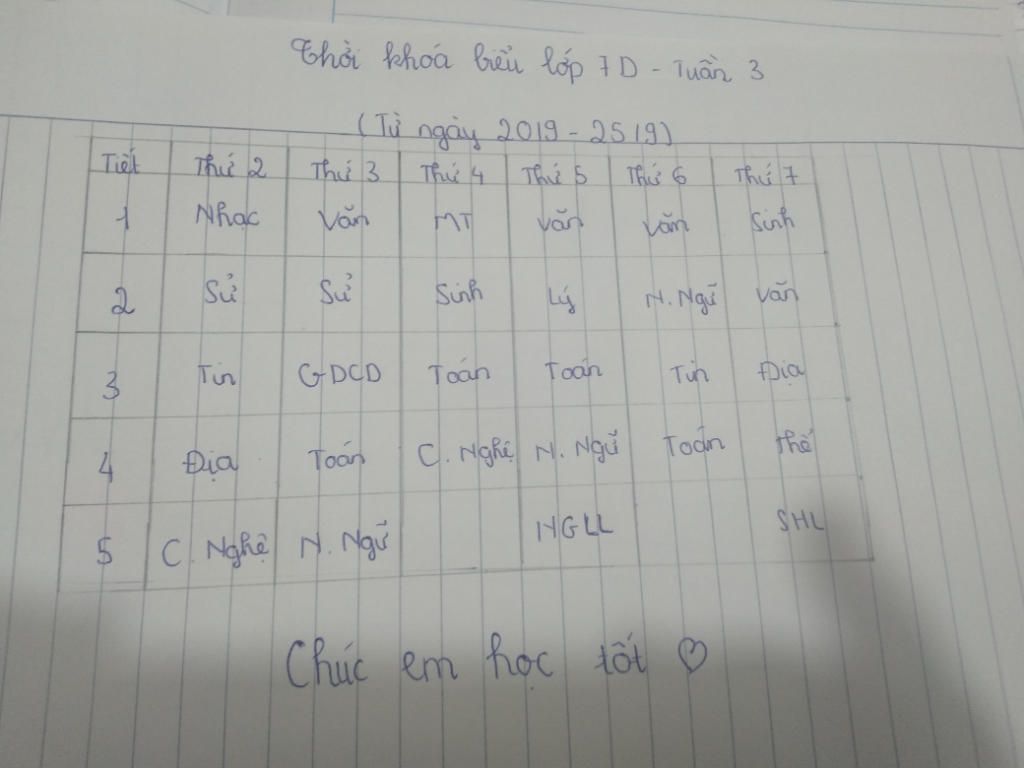 Thời khoá biểu lớp 7D - Tuần 3
(Từ ngày 20/9 - 25/9)
Tiết Thứ 2 Thứ 3 Thứ 4 Thứ 5 Thứ 6 Thứ 7
1 Nhạc Văn MT Văn Văn Sinh
2 Sử Sử Sinh Lý N.Ngữ Văn
3 Tin GDCD Toán Toán Tin Địa
4 Địa Toán C.Nghệ N.Ngữ Toán Thể
5 C.Nghệ N.Ngữ NGLL SHL
Chúc em học tốt ♡